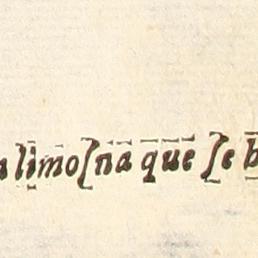 limoſna que ſe